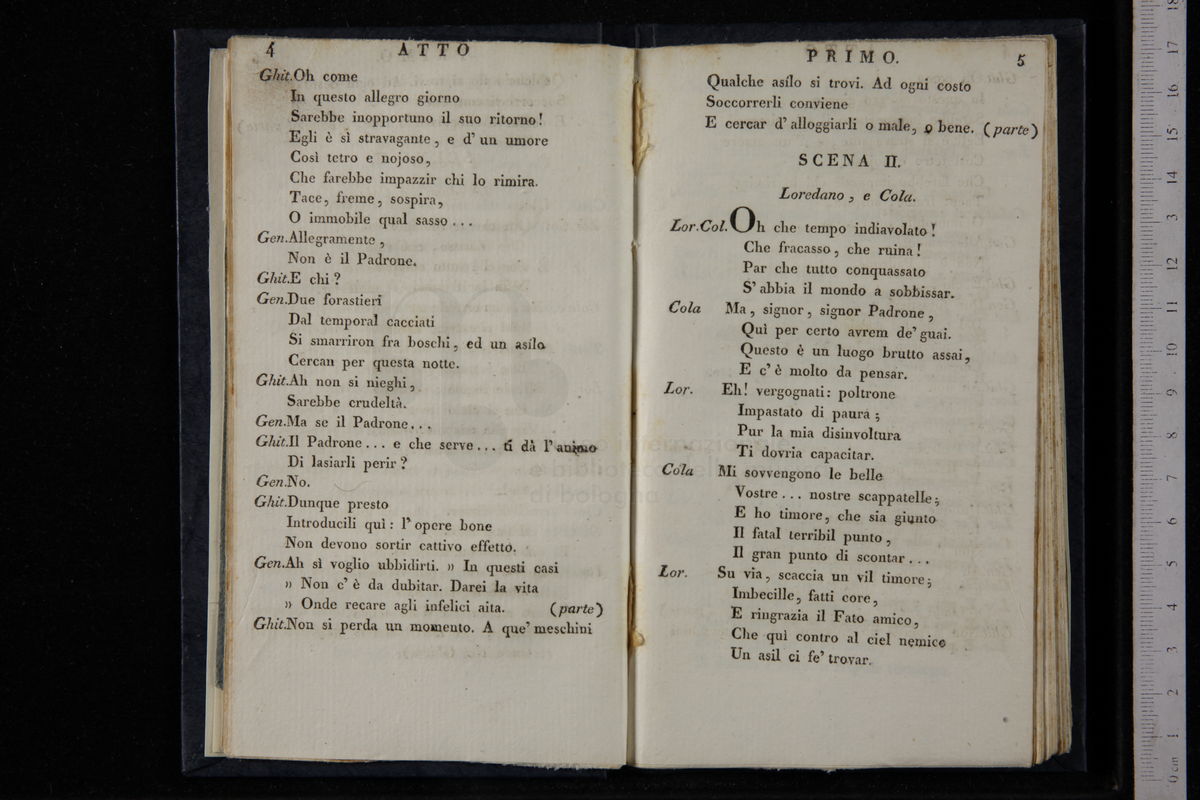 4 ATTO
Ghit.Oh come
In questo allegro giorno
Sarebbe inopportuno il suo ritorno!
Egli è sì stravagante, e d' un umore
Così tetro e nojoso,
Che farebbe impazzir chi lo rimira.
Tace, freme, sospira,
O immobile qual sasso ...
Gen.Allegramente,
Non è il Padrone.
Ghit.E chi?
Gen.Due forastieri
Dal temporal cacciati
Si smarriron fra boschi, ed un asilo
Cercan per questa notte.
Ghit.Ah non si nieghi,
Sarebbe crudeltà.
Gen.Ma se il Padrone...
Ghit.Il Padrone... e che serve... ti dà l' animo
Di lasiarli perir?
Gen.No.
Ghit.Dunque presto
Introducili quì: l' opere bone
Non devono sortir cattivo effetto.
Gen.Ah sì voglio ubbidirti. » In questi casi
» Non c' è da dubitar. Darei la vita
» Onde recare agli infelici aita. (parte)
Ghit.Non si perda un momento. A que' meschini
PRIMO. 5
Qualche asilo si trovi. Ad ogni costo
Soccorrerli conviene
E cercar d' alloggiarli o male, o bene. (parte)
SCENA II.
Loredano, e Cola.
Lor.Col.Oh che tempo indiavolato!
Che fracasso, che ruina!
Par che tutto conquassato
S' abbia il mondo a sobbissar.
Cola Ma, signor, signor Padrone,
Quì per certo avrem de' guai.
Questo è un luogo brutto assai,
E c' è molto da pensar.
Lor. Eh! vergognati: poltrone
Impastato di paura;
Pur la mia disinvoltura
Ti dovria capacitar.
Cola Mi sovvengono le belle
Vostre... nostre scappatelle;
E ho timore, che sia giunto
Il fatal terribil punto,
Il gran punto di scontar...
Lor. Su via, scaccia un vil timore;
Imbecille, fatti core,
E ringrazia il Fato amico,
Che quì contro al ciel nemico
Un asil ci fe' trovar.